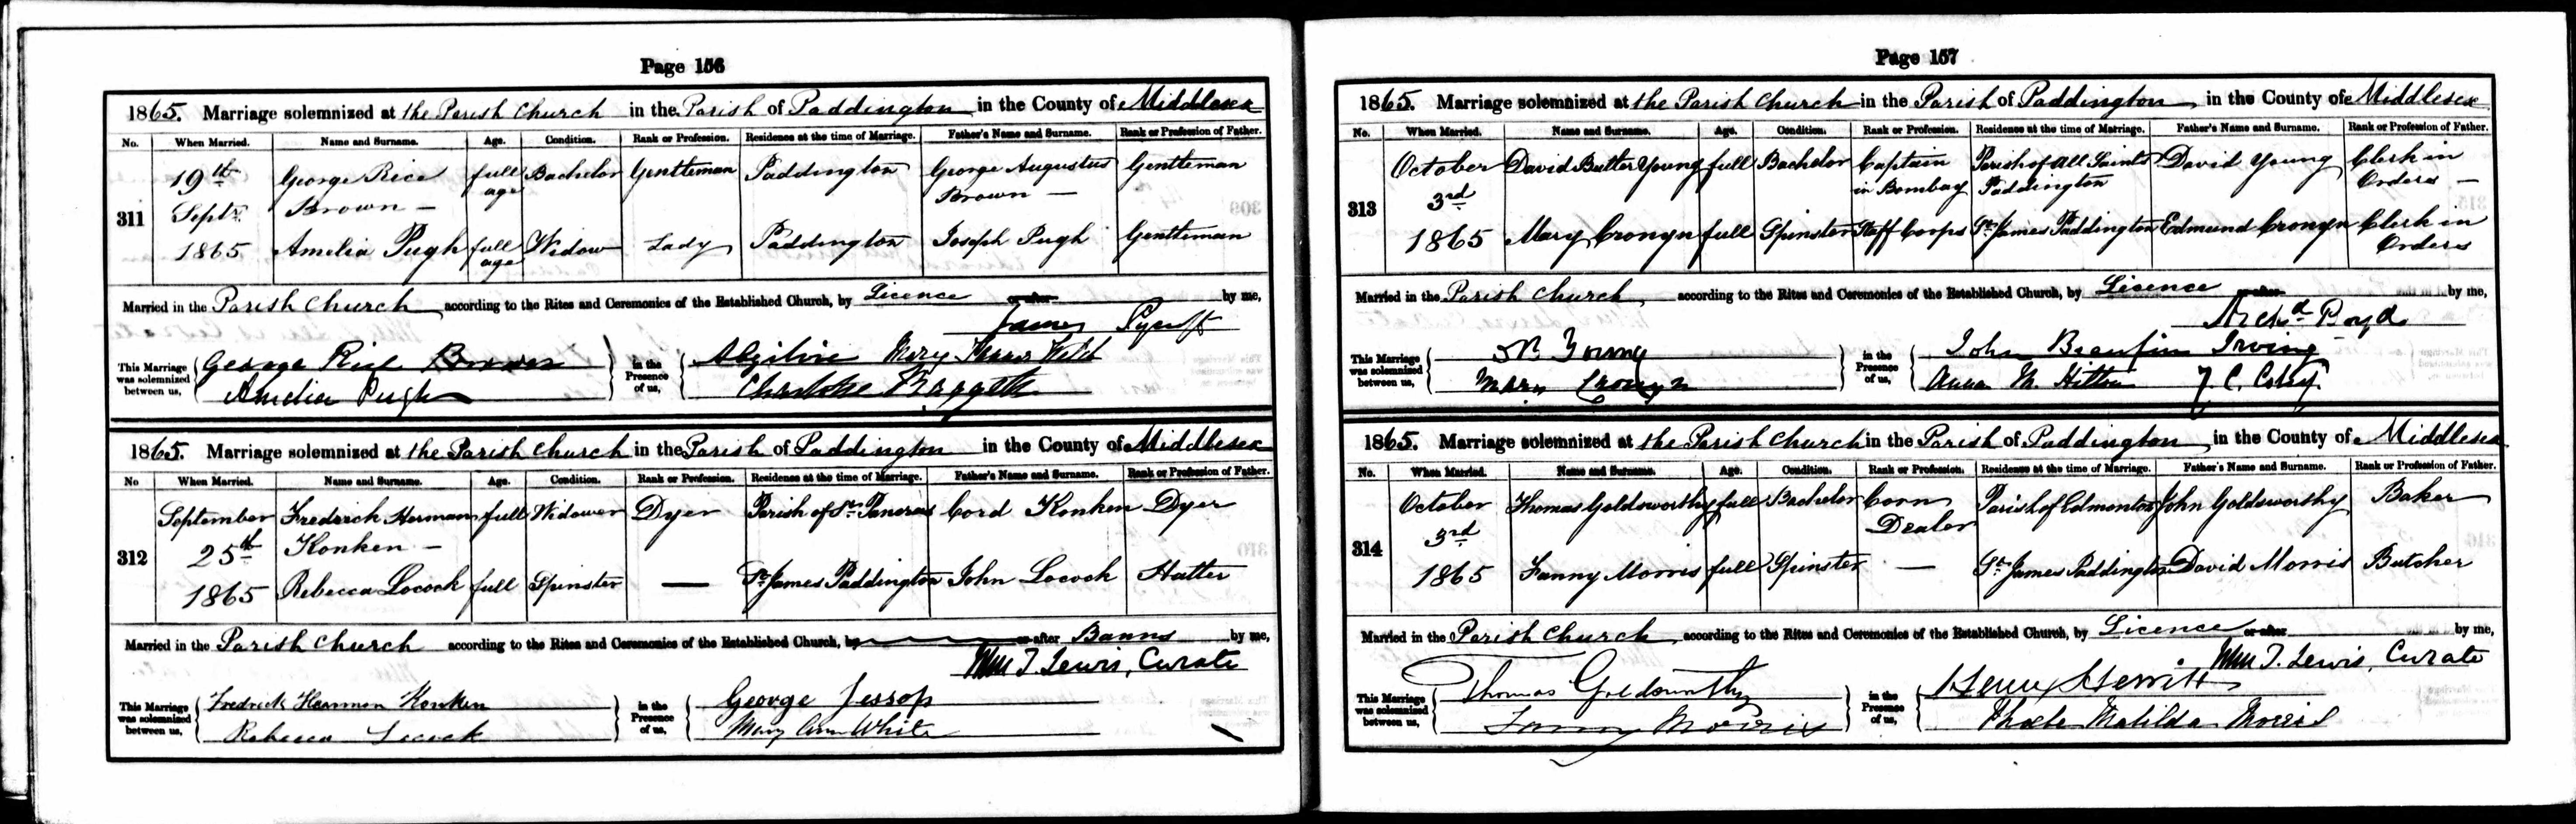 Page 156
1865. Marriage solemnized at the Parish Church in the Parish of Paddington in the County of Middlesex
No. When Married. Name and Surname. Age. Condition. Rank or Profession. Residence at the time of Marriage. Father's Name and Surname. Rank or Profession of Father.
311 19th Septr. 1865 George Rice Brown — full age Bachelor Gentleman Paddington George Augustus Brown — Gentleman
Amelia Pugh full age Widow Lady Paddington Joseph Pugh Gentleman
Married in the Parish Church according to the Rites and Ceremonies of the Established Church, by Licence or after by me,
James Pycroft
This Marriage was solemnized between us, George Rice Brown Amelia Pugh in the Presence of us, Mary Charlotte
1865. Marriage solemnized at the Parish Church in the Parish of Paddington in the County of Middlesex
No When Married. Name and Surname. Age. Condition. Rank or Profession. Residence at the time of Marriage. Father's Name and Surname. Rank or Profession of Father.
312 September 25th 1865 Frederick Herman Konken — full Widower Dyer Parish of St. Pancras Cord Konken Dyer
Rebecca Locock full Spinster — St. James Paddington John Locock Hatter
Married in the Parish Church according to the Rites and Ceremonies of the Established Church, by or after Banns by me,
Wm J. Lewis, Curate
This Marriage was solemnized between us, Fredrick Herman Konken Rebecca Locock in the Presence of us, George Jessop Mary Ann White
Page 157
1865. Marriage solemnized at the Parish Church in the Parish of Paddington in the County of Middlesex
No. When Married. Name and Surname. Age. Condition. Rank or Profession. Residence at the time of Marriage. Father's Name and Surname. Rank or Profession of Father.
313 October 3rd 1865 David Butter Young full Bachelor Captain in Bombay Staff Coops Parish of All Saints Paddington David Young Clerk in Orders —
Mary Cronyn full Spinster St. James Paddington Edmund Cronyn Clerk in Orders
Married in the Parish Church according to the Rites and Ceremonies of the Established Church, by Licence or after by me,
Archd Boyd
This Marriage was solemnized between us, DB Young Mary Cronyn in the Presence of us, John Beaufin Irving Anna M Hilton
1865. Marriage solemnized at the Parish Church in the Parish of Paddington in the County of Middlesex
No. When Married. Name and Surname. Age. Condition. Rank or Profession. Residence at the time of Marriage. Father's Name and Surname. Rank or Profession of Father.
314 October 3rd 1865 Thomas Goldsworthy full Bachelor Corn Dealer Parish of Edmonton John Goldsworthy Baker
Fanny Morris full Spinster — St. James Paddington David Morris Butcher
Married in the Parish Church according to the Rites and Ceremonies of the Established Church, by Licence or after by me,
Wm J. Lewis, Curate
This Marriage was solemnized between us, Thomas Goldsworthy Fanny Morris in the Presence of us, Henry Hewitt Phoebe Matilda Morris